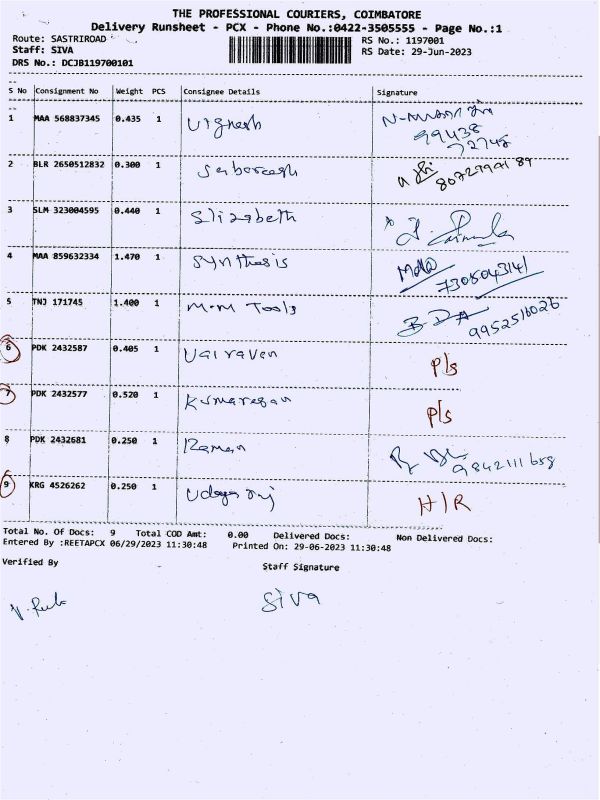 THE PROFESSIONAL COURIERS, COIMBATORE
Delivery Runsheet - PCX - Phone No.:0422-3505555 - Page No.:1
Route: SASTRIROAD RS No.: 1197001
Staff: SIVA RS Date: 29-Jun-2023
DRS No.: DCJB119700101
S No Consignment No Weight PCS Consignee Details Signature
1 MAA 568837345 0.435 1 Vignesh
99438
72748
2 BLR 2650512832 0.300 1
3 SLM 323004595 0.440 1 Elizabeth
4 MAA 859632334 1.470 1 Synthesis
7305043141
5 TNJ 171745 1.400 1 M.M Tools
9952516026
6 PDK 2432587 0.405 1 Vairaven P/s
7 PDK 2432577 0.520 1 Kumaresan P/s
8 PDK 2432681 0.250 1 Raman 9842111658
9 KRG 4526262 0.250 1 Udaya raj H/R
Total No. Of Docs: 9 Total COD Amt: 0.00 Delivered Docs: Non Delivered Docs:
Entered By :REETAPCX 06/29/2023 11:30:48 Printed On: 29-06-2023 11:30:48
Verified By Staff Signature
Siva